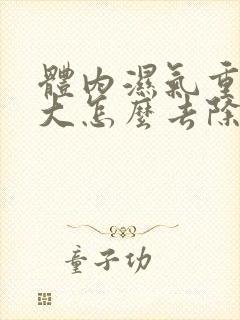 體內濕氣重
大怎麼去除
童子功